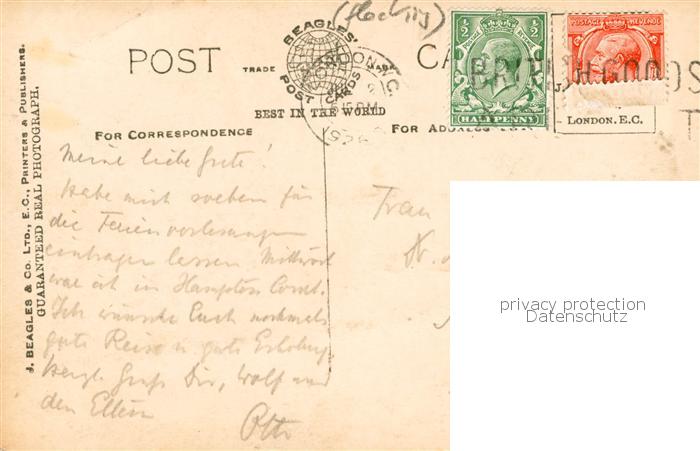 (flocky)
BEAGLES'
POST CARDS
POST
TRADE
MARK
BEST IN THE WORLD
HALFPENNY
POSTAGE REVENUE
BRITISH GOODS
LONDON, E.C.
FOR CORRESPONDENCE
FOR ADDRESS
J. BEAGLES & CO. LTD., E.C., PRINTERS & PUBLISHERS.
GUARANTEED REAL PHOTOGRAPH.
Meine liebe Grete!
Habe mich soeben für
die Ferienvorlesungen
eintragen lassen Mittwoch
war ich in Hampton Court.
Ich wünsche Euch nochmals
gute Reise u. gute Erholung
herzl. Gruß Dir, Wolf und
den Eltern
Otto
Frau
privacy protection
Datenschutz